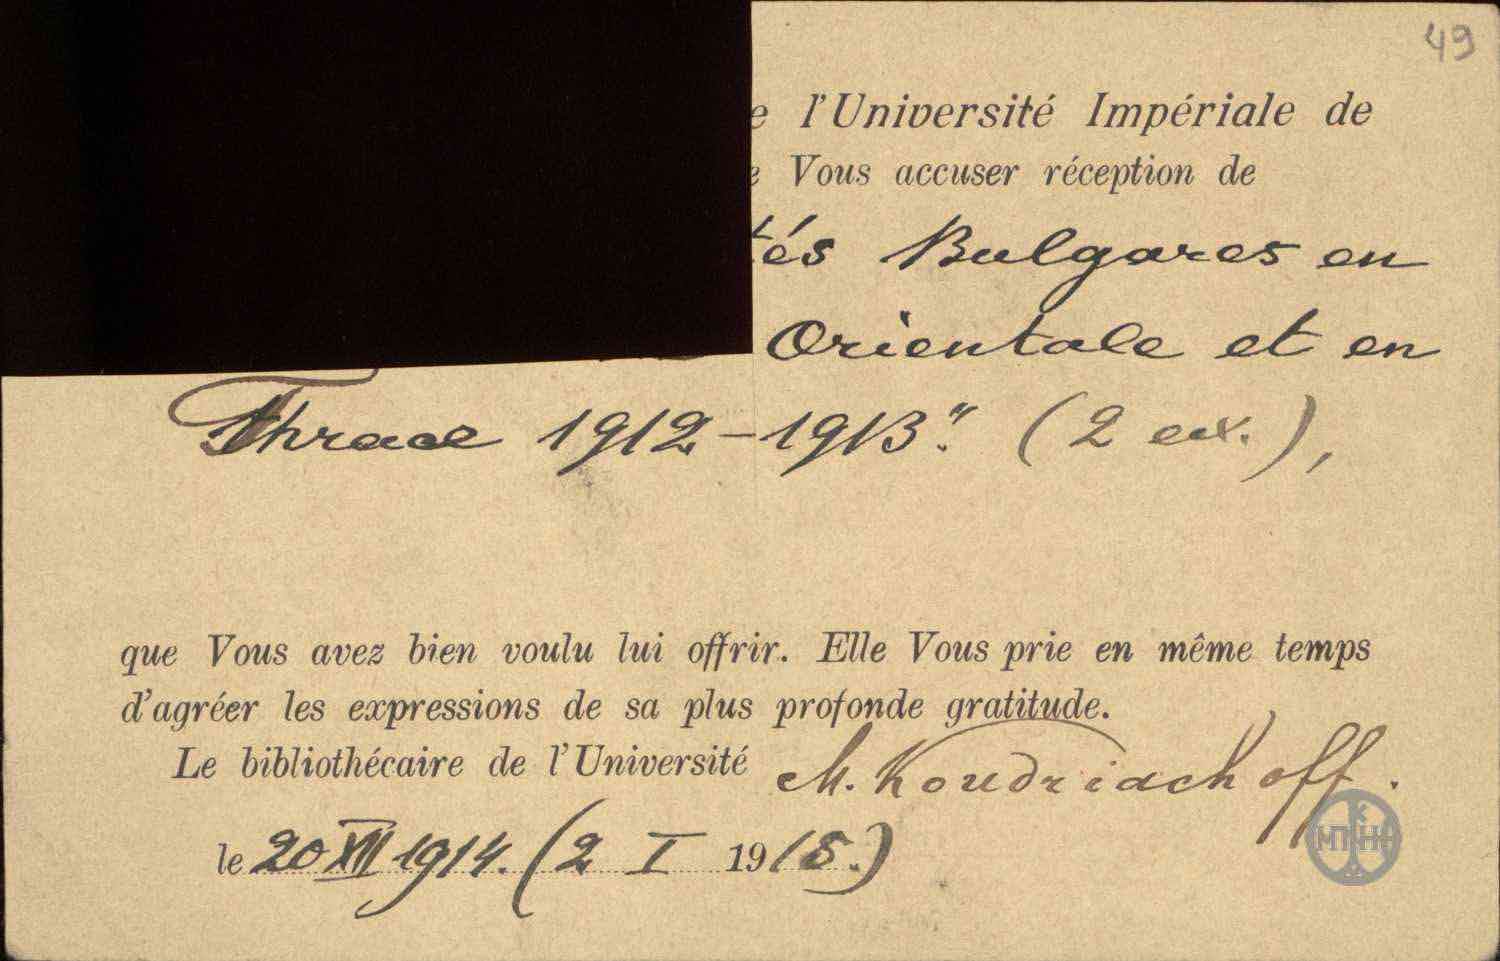 49
e l'Université Impériale de
e Vous accuser réception de
tés Bulgares en
Orientale et en
Thrace 1912-1913." (2 ex.),
que Vous avez bien voulu lui offrir. Elle Vous prie en même temps
d'agréer les expressions de sa plus profonde gratitude.
Le bibliothécaire de l'Université M. Koudriachoff.
le 20 XII 1914. (2 I 1915.)